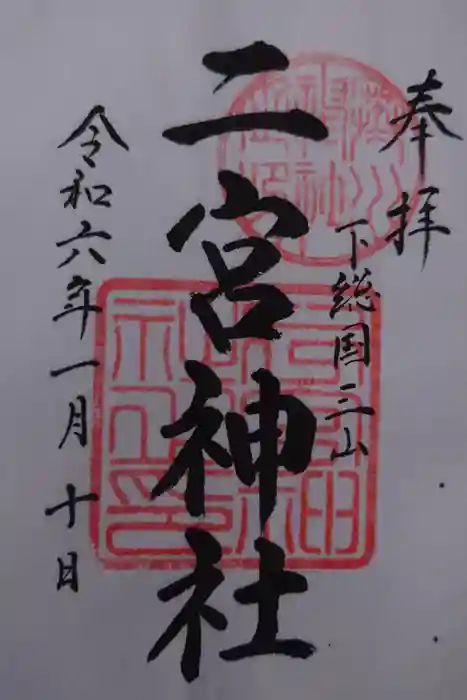 奉拝
下総国三山
二宮神社
令和六年一月十日